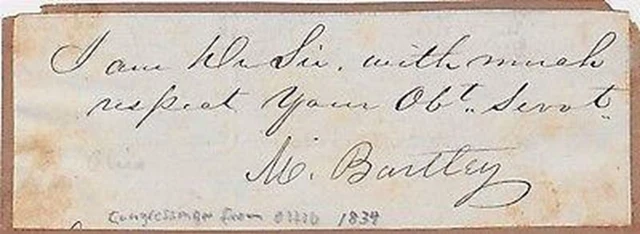 I am Dr Sir, with much
respect Your Obt. Servt.
M. Bartley
Congressman from Ohio 1834